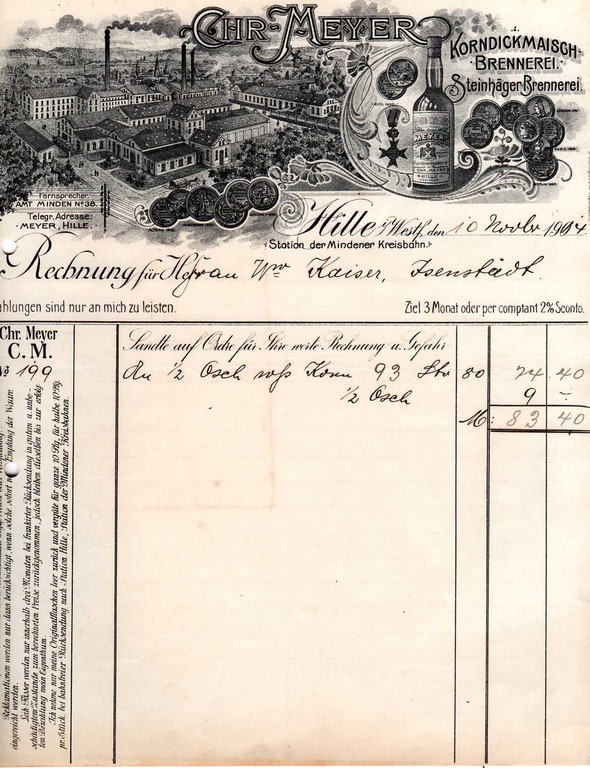 CHR. MEYER
KORNDICKMAISCH-
BRENNEREI.
Steinhäger-Brennerei.
MEYER
Fernsprecher:
AMT MINDEN No 38.
Telegr. Adresse:
MEYER, HILLE.
Hille i/Westf., den 10 Novbr 1904
Station der Mindener Kreisbahn.
Rechnung für Frau Ww Kaiser, Isenstädt.
ahlungen sind nur an mich zu leisten.
Ziel 3 Monat oder per comptant 2% Sconto.
Chr. Meyer
C. M.
No 199
Sandte auf Ordre für Ihre werte Rechnung u. Gefahr
An 1/2 Oxh Korn 93 Ltr 80 74 40
1/2 Oxh 9 -
M: 83 40
Reklamationen werden nur dann berücksichtigt, wenn solche sofort nach Empfang der Waare
eingereicht werden.
Leih-Fässer werden nur innerhalb drei Monaten bei frankirter Rücksendung in gutem u. unbe-
schädigtem Zustande zum berechneten Preise zurückgenommen, jedoch bleiben dieselben bis zur erfolg-
ten Bezahlung mein Eigenthum.
Ich nehme nur meine Originalflaschen leer zurück und vergüte für ganze 10 Pfg. für halbe 10 Pfg.
pr. Stück, bei bahnfreier Rücksendung nach Station Hille, Station der Mindener Kreisbahnen.